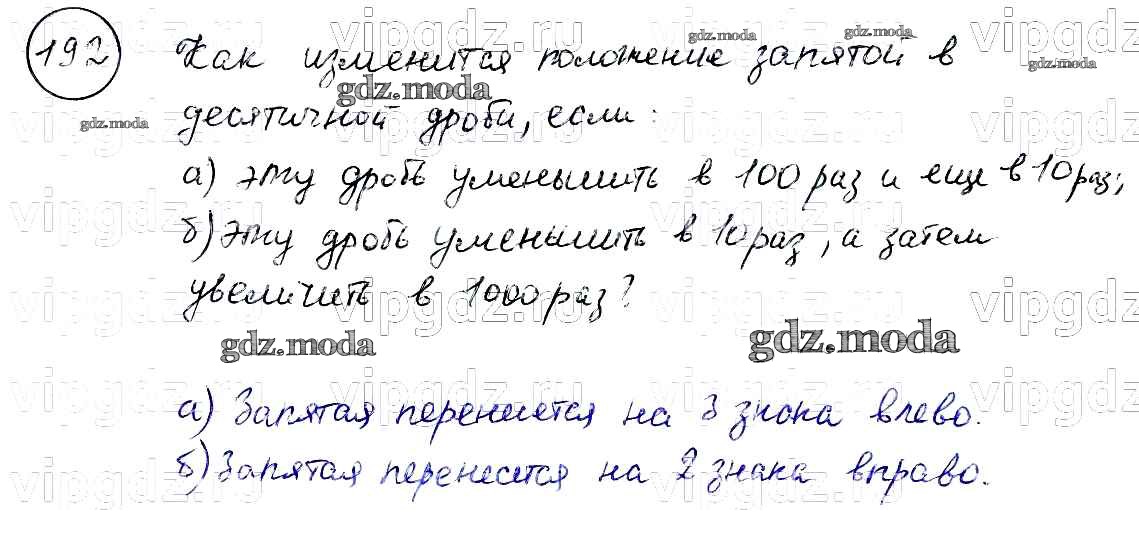 192 Как изменится положение запятой в
десятичной дроби, если:
а) эту дробь уменьшить в 100 раз и еще в 10 раз;
б) эту дробь уменьшить в 10 раз, а затем
увеличить в 1000 раз?
а) Запятая перенесется на 3 знака влево.
б) Запятая перенесется на 2 знака вправо.
gdz.moda
gdz.moda
gdz.moda
gdz.moda
gdz.moda
gdz.moda
gdz.moda
vipgdz.ru